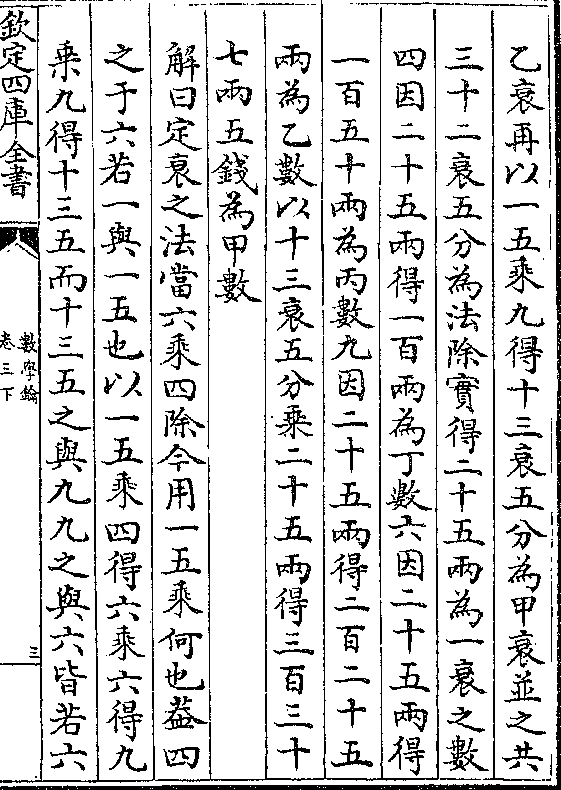 乙衰再以一五乘九得十三衰五分為甲衰並之共
三十二衰五分為法除實得二十五兩為一衰之數
四因二十五兩得一百兩為丁數六因二十五兩得
一百五十兩為丙數九因二十五兩得二百二十五
兩為乙數以十三衰五分乗二十五兩得三百三十
七兩五錢為甲數
解曰定衰之法當六乘四除今用一五乘何也葢四
之于六若一與一五也以一五乘四得六乘六得九
乗九得十三五而十三五之與九九之與六皆若六
欽定四庫全書
數學鑰
卷三下
三